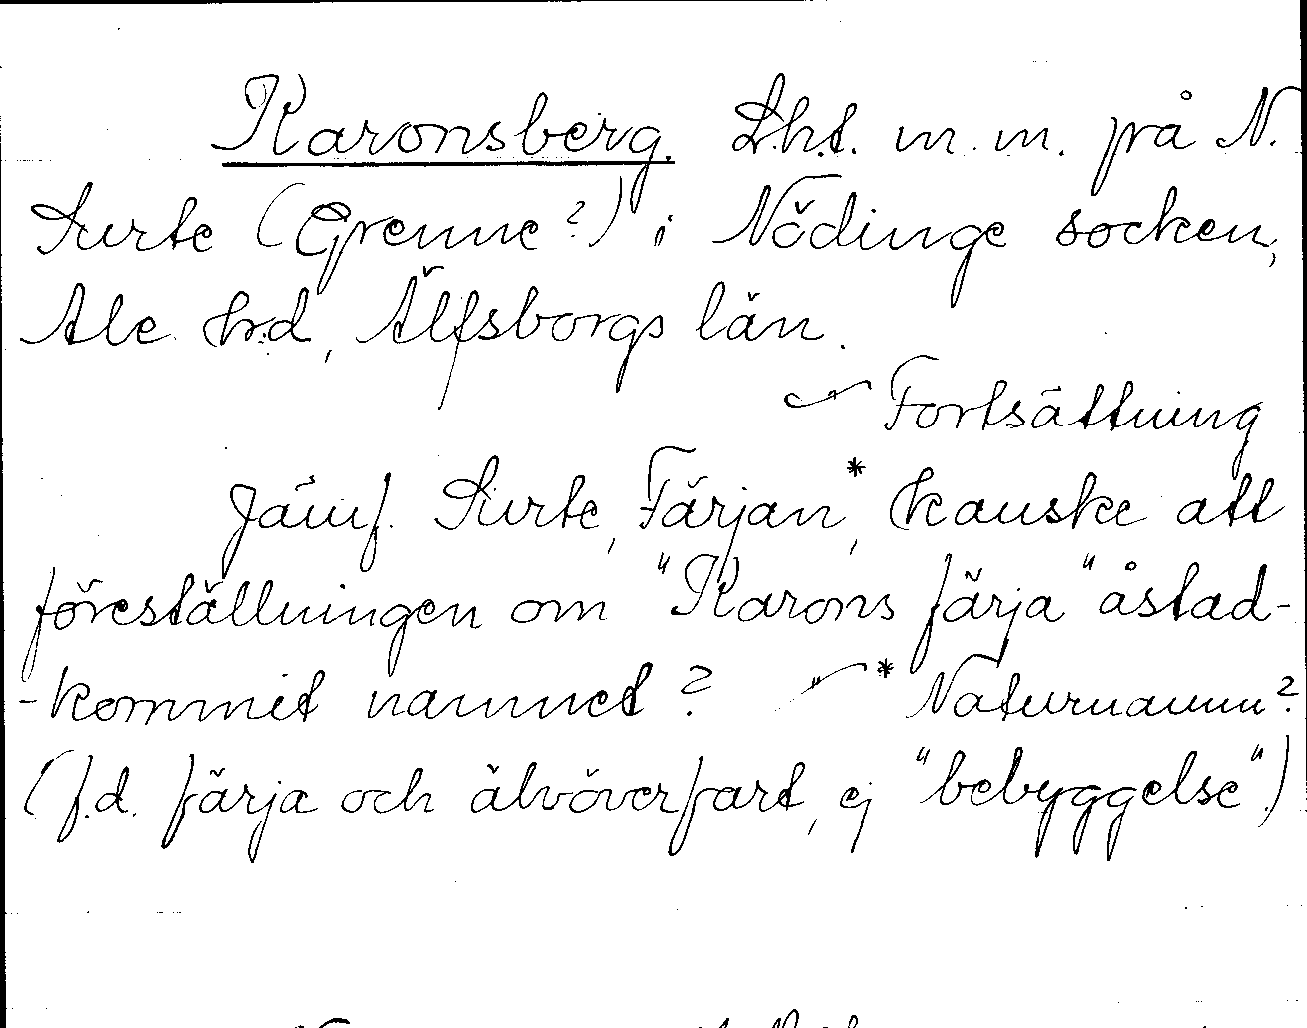 Karonsberg. Lht. m.m. på N.
Surte (Grenne?) i Nödinge socken,
Ale hrd, Älfsborgs län.
Fortsättning
Jämf. Surte, Färjan*, kanske att
föreställningen om "Karons färja" åstad-
-kommit namnet? * Naturnamn?
(f.d. färja och älvöverfart, ej "bebyggelse".)